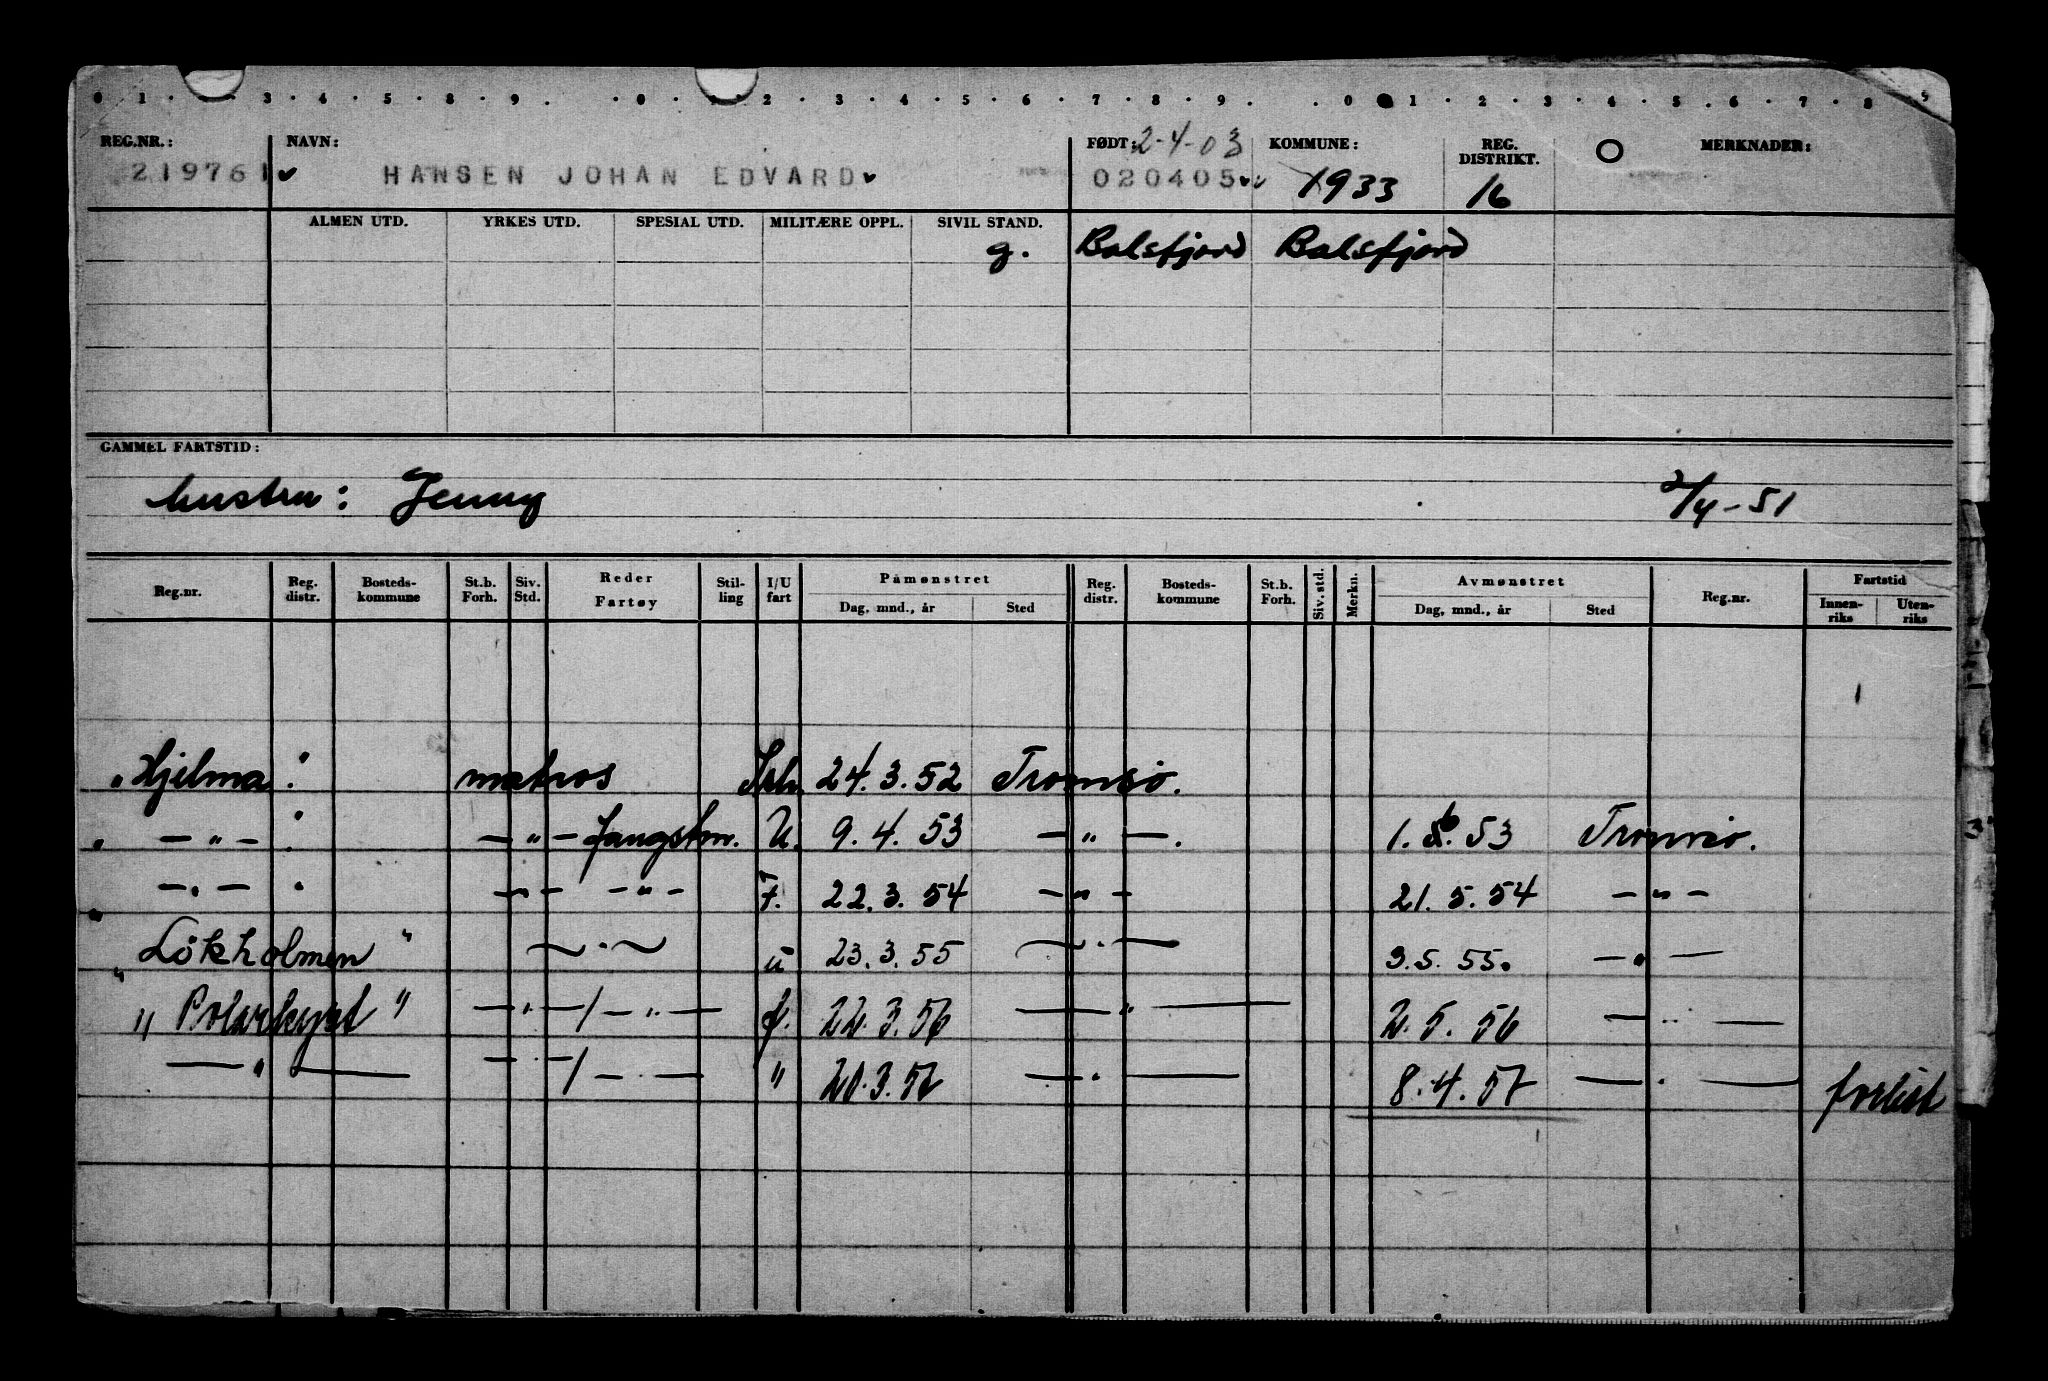 0 1 . . 3 . 4 . 5 . 8 . 9 . . 0 . 1 2 . 3 . 4 . 5 . 6 . 7 . 8 . 9 . . 0 1 . 2 . 3 . 4 . 5 . 6 . 7 . 8 9
REG.NR.: NAVN: FØDT: 2-4-03 KOMMUNE: REG. DISTRIKT. O MERKNADER:
219761 HANSEN JOHAN EDVARD 020405 1933 16
ALMEN UTD. YRKES UTD. SPESIAL UTD. MILITÆRE OPPL. SIVIL STAND.
g. Balsfjord Balsfjord
GAMMEL FARTSTID:
hustru: Jenny 2/4-51
Reg.nr. Reg. distr. Bosteds-kommune St.b. Forh. Siv. Std. Reder Fartøy Stil-ling I/U fart Påmønstret Reg. distr. Bosteds-kommune St.b. Forh. Siv. std. Merkn. Avmønstret Reg.nr. Fartstid
Dag, mnd., år Sted Dag, mnd., år Sted Innen-riks Uten-riks
"Hjelma" matros 24.3.52 Tromsø.
" — " — " — " — fangstm. U. 9.4.53 — " — 1.5.53 Tromsø.
— " — — " — — " — F. 22.3.54 — " — 21.5.54 — " —
"Lökholmen" — " — u 23.3.55 — " — 3.5.55. — " —
"Polarkyst" — " — / — " — f. 22.3.56 — " — 2.5.56 — " —
— " — — " — / — " — " — " — 8.4.57 — " — forlist